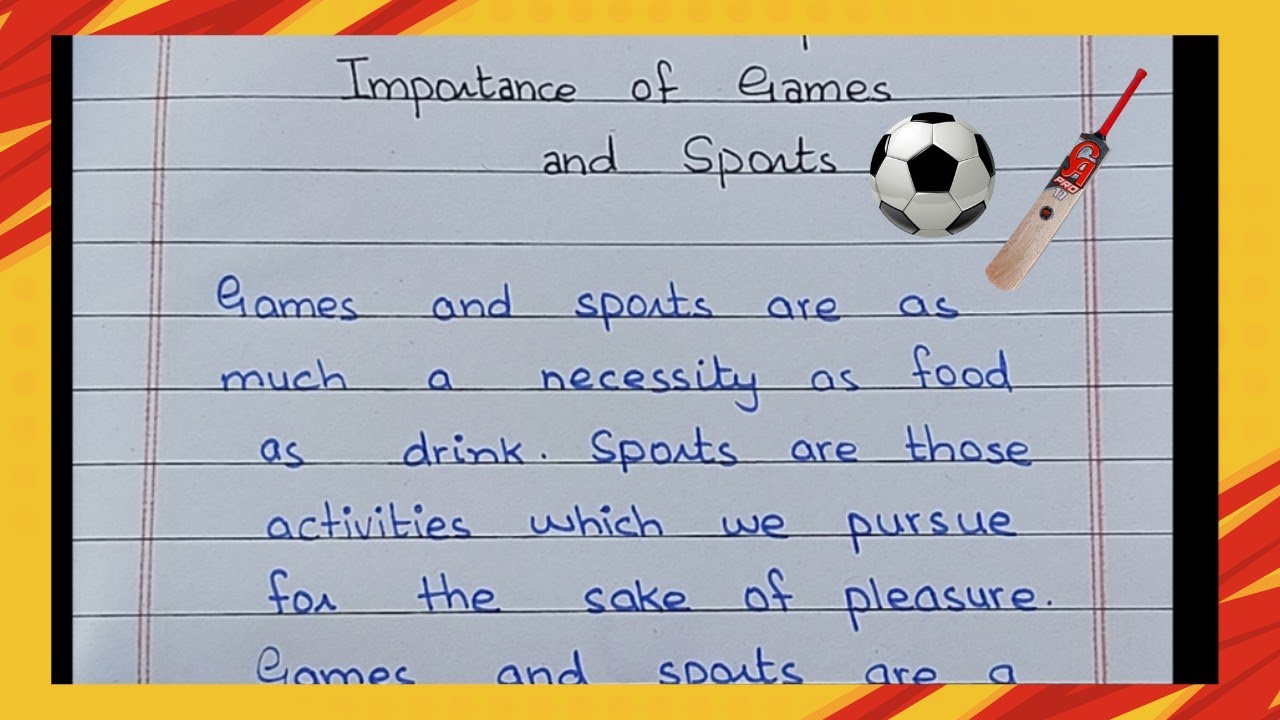 Importance of Games
and Sports
CA
PRO
17
Games and sports are as
much a necessity as food
as drink. Sports are those
activities which we pursue
for the sake of pleasure.
Games and sports are a